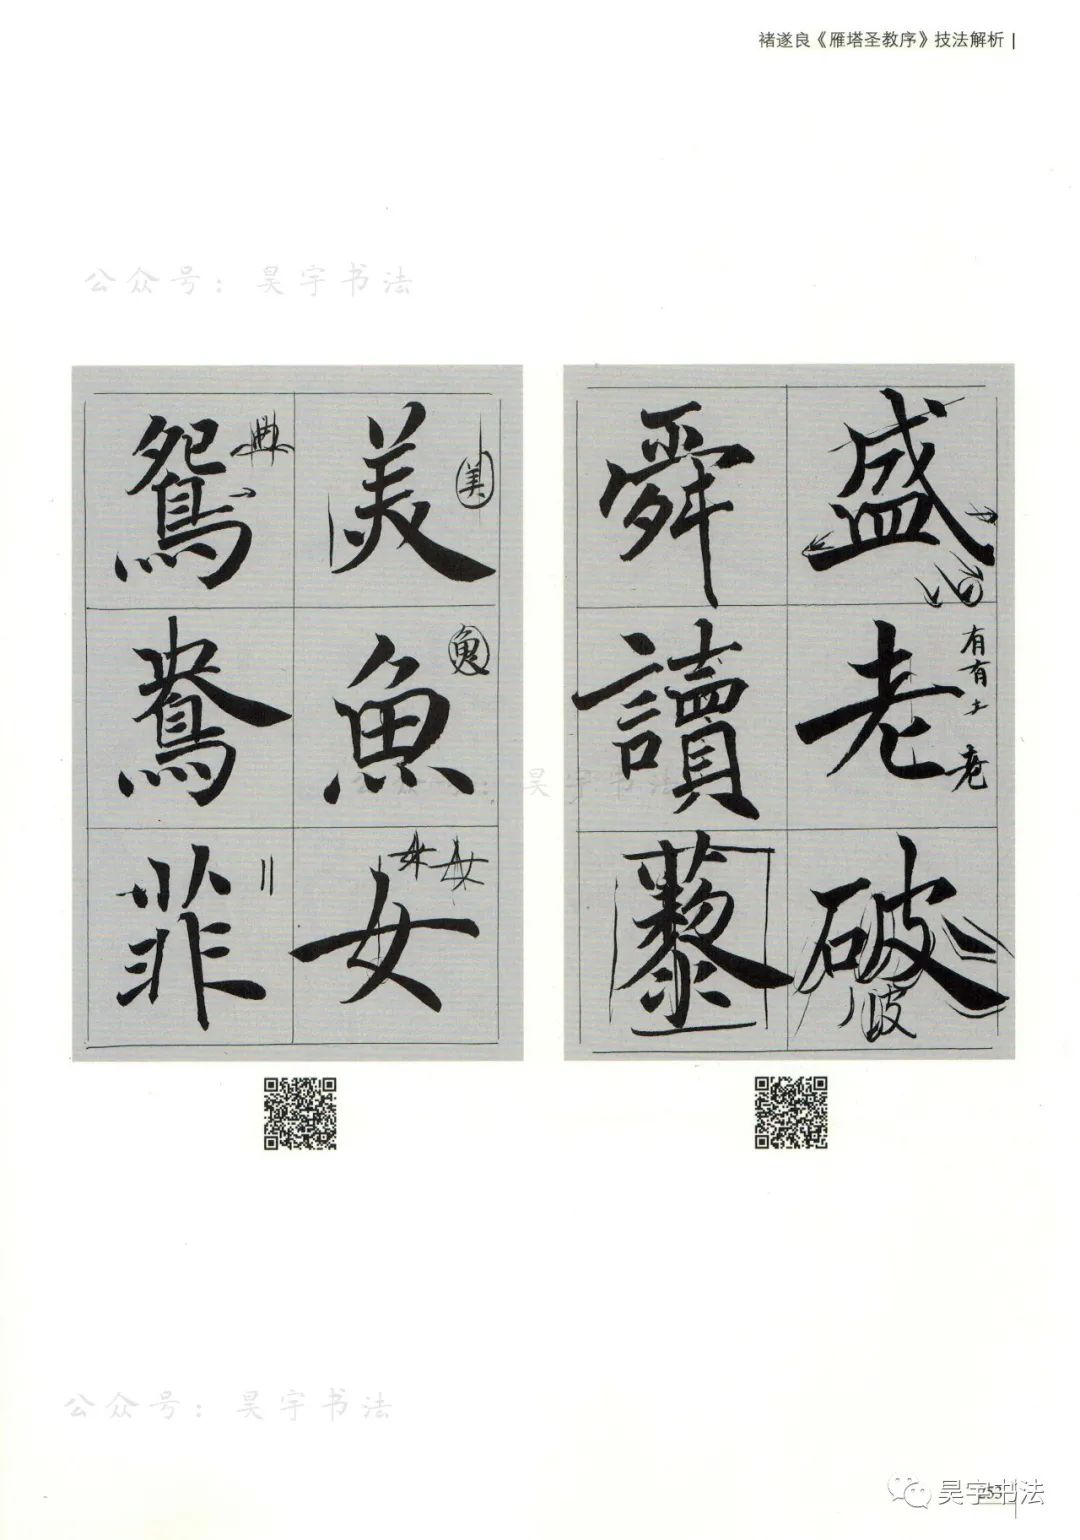 褚遂良《雁塔圣教序》技法解析
公众号：昊宇书法
鴛 美
鴦 魚
菲 女
典
美
盛 
舜
老
讀
破
藜
有
有
土
老
公众号：昊宇书法
公众号：昊宇书法
253
昊宇书法